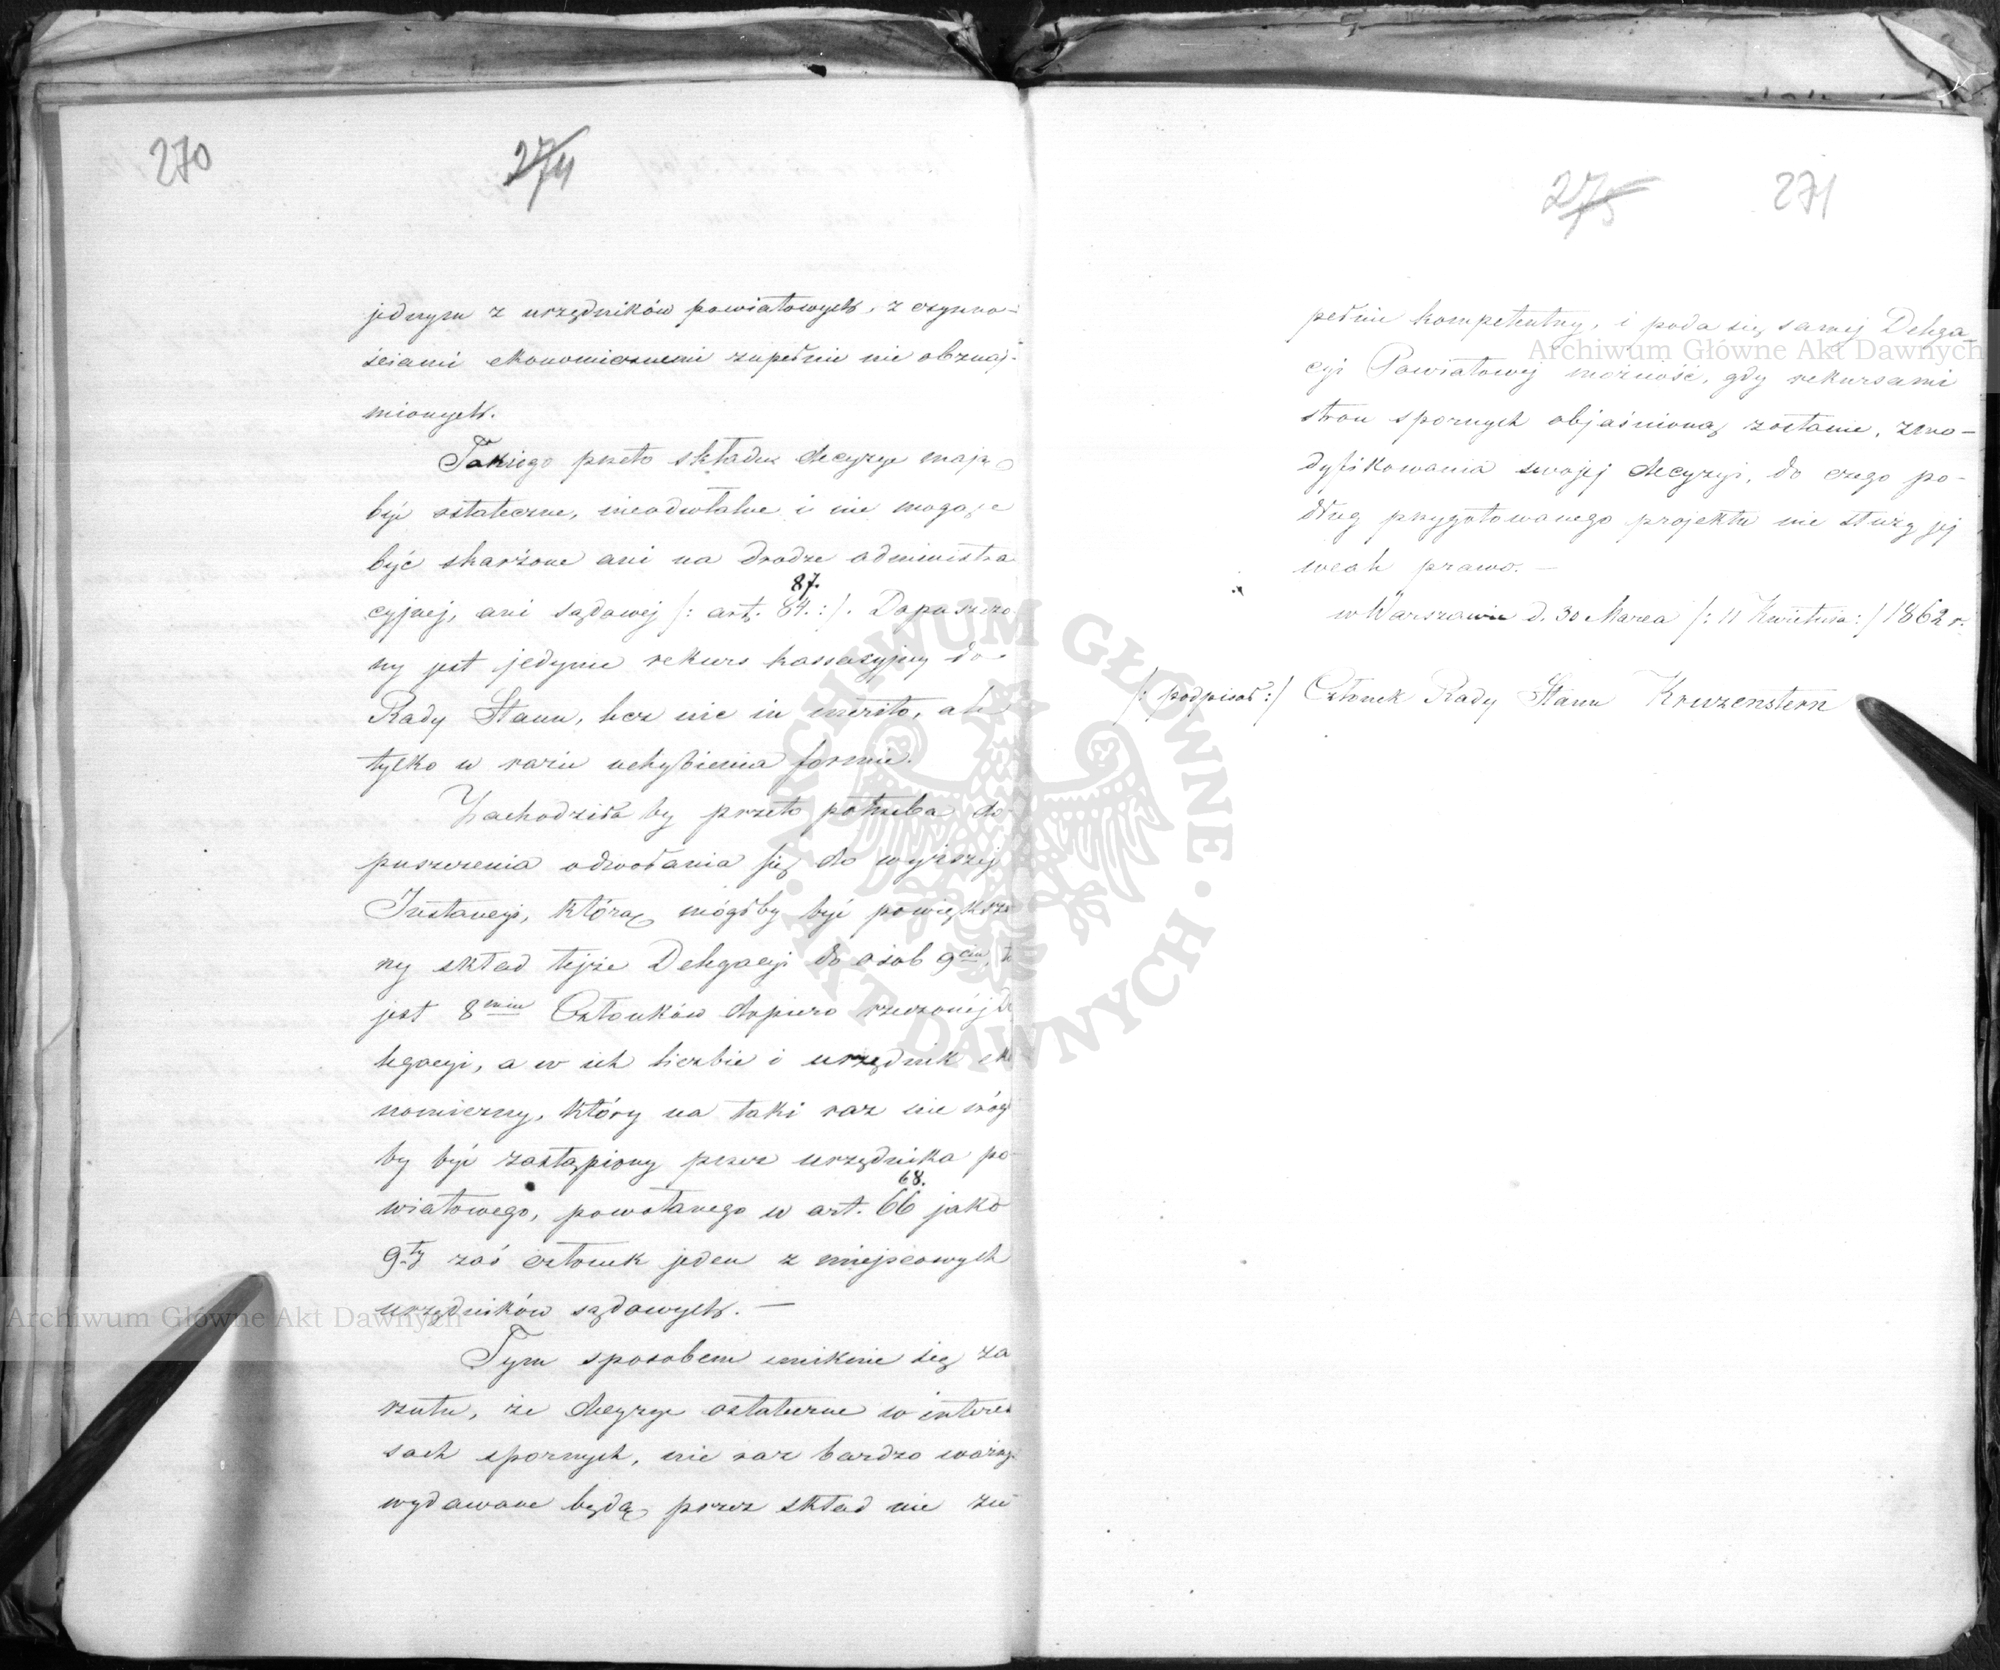 270
274
jednym z urzędników powiatowych, z czynno-
ściami ekonomicznemi zupełnie nie obznaj-
mionych.
Takiego przeto składu decyzye mają
być ostateczne, nieodwołalne i nie mogą
być skarżone ani na drodze administra
cyjnej, ani sądowej /: art. 84. :/. Dopuszczo
87.
ny jest jedynie rekurs kassacyjny do
Rady Stanu, lecz nie in merito, ale
tylko w razie uchybienia formie.
Zachodziłaby przeto potrzeba do-
puszczenia odwołania się do wyższej
Instancyi, którą mógłby być powiększo
ny skład tejże Delegacyi do osób 9ciu, to
jest 8miu Członków dopiero rzeczonéj De
legacyi, a w ich liczbie i urzędnik eko
nomiczny, który na taki raz nie mógł
by być zastąpiony przez urzędnika po
wiatowego, powołanego w art. 66 jako
68.
9ty zaś członek jeden z miejscowych
urzędników sądowych. —
Tym sposobem uniknie się za
rzutu, że decyzye ostateczne w intere
sach spornych, nie raz bardzo ważnych
wydawane będą przez skład nie zu
275
271
pełnie kompetentny, i poda się samej Delega
cyi Powiatowej możność, gdy rekursami
stron spornych objaśnioną zostanie, zmo-
dyfikowania swojej decyzyi, do czego po-
dług przygotowanego projektu nie służy jej
wcale prawo. —
w Warszawie d. 30 Marca /: 11 Kwietnia :/ 1862 r.
/: podpisał :/ Członek Rady Stanu Kruzenstern
Archiwum Główne Akt Dawnych
Archiwum Główne Akt Dawnych
ARCHIWUM GŁÓWNE · AKT DAWNYCH ·